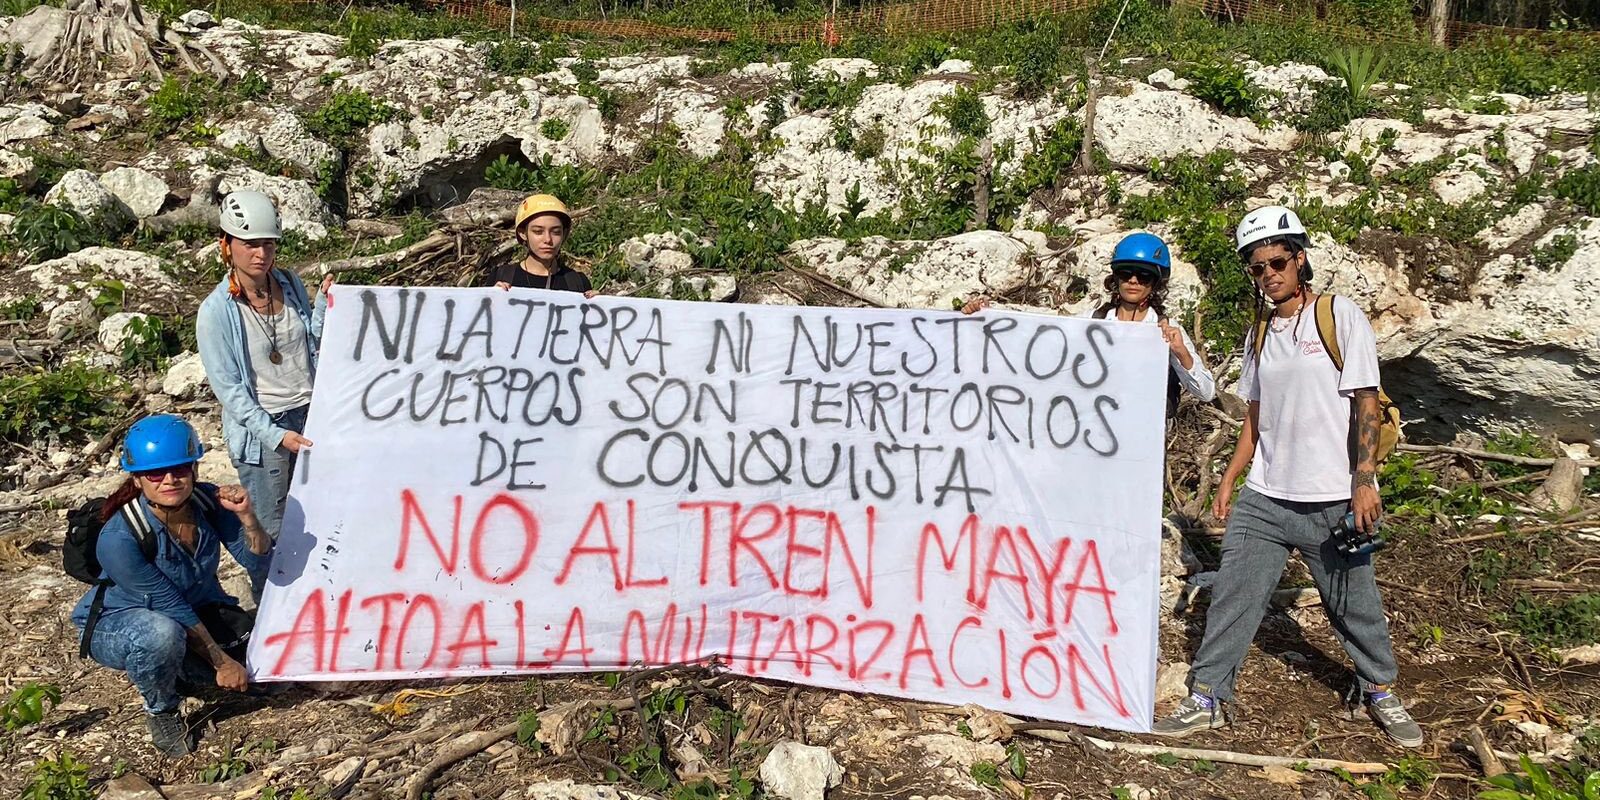 NI LA TIERRA NI NUESTROS
CUERPOS SON TERRITORIOS
DE CONQUISTA
NO AL TREN MAYA
ALTO A LA MILITARIZACIÓN